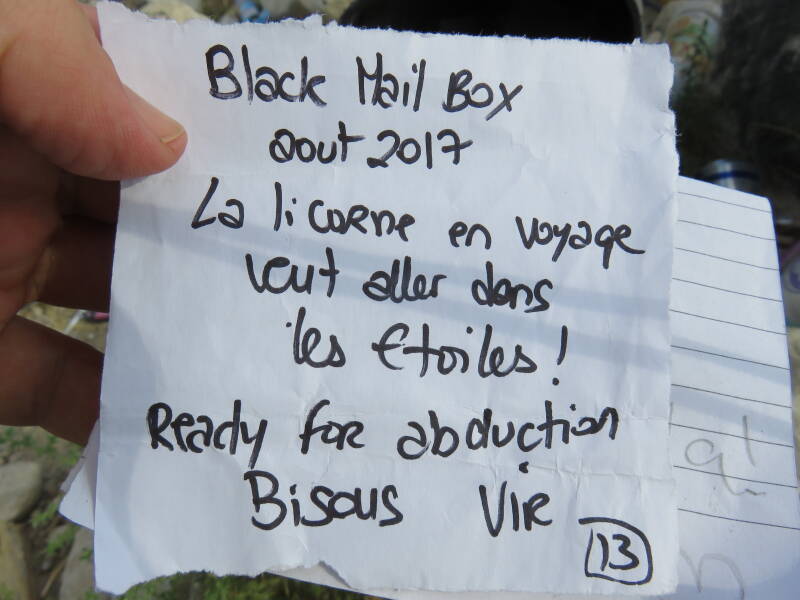 Black Mail Box
aout 2017
La licorne en voyage
veut aller dans
les Etoiles!
Ready for abduction
Bisous Vir
13
a!